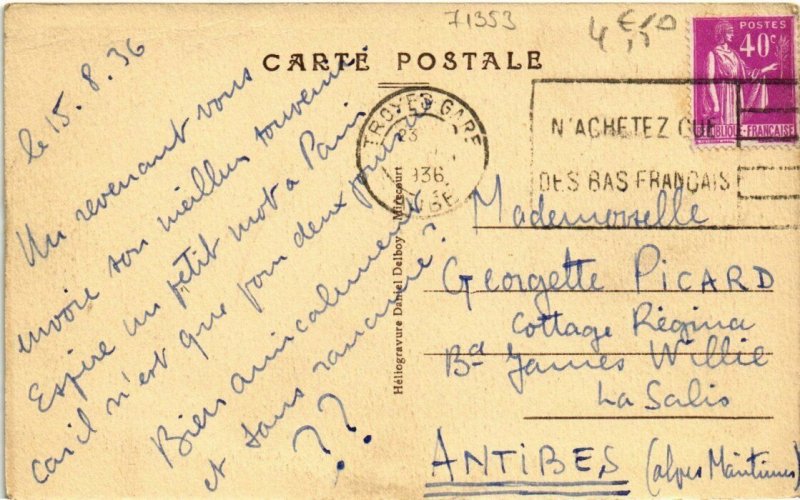 71353
4€,50
CARTE POSTALE
POSTES
40c
RÉPUBLIQUE FRANÇAISE
TROYES GARE
23
1936
AUBE
N'ACHETEZ QUE
DES BAS FRANÇAIS
le 15.8.36
Un revenant vous
envoie son meilleur souvenir.
Espère un petit mot à Paris
car il n'est que pour deux jours
Bien amicalement
et sans rancune?
??
Héliogravure Daniel Delboy - Mirecourt
Mademoiselle
Georgette PICARD
Cottage Régina
Bd James Willie
La Salis
ANTIBES (Alpes Maritimes)